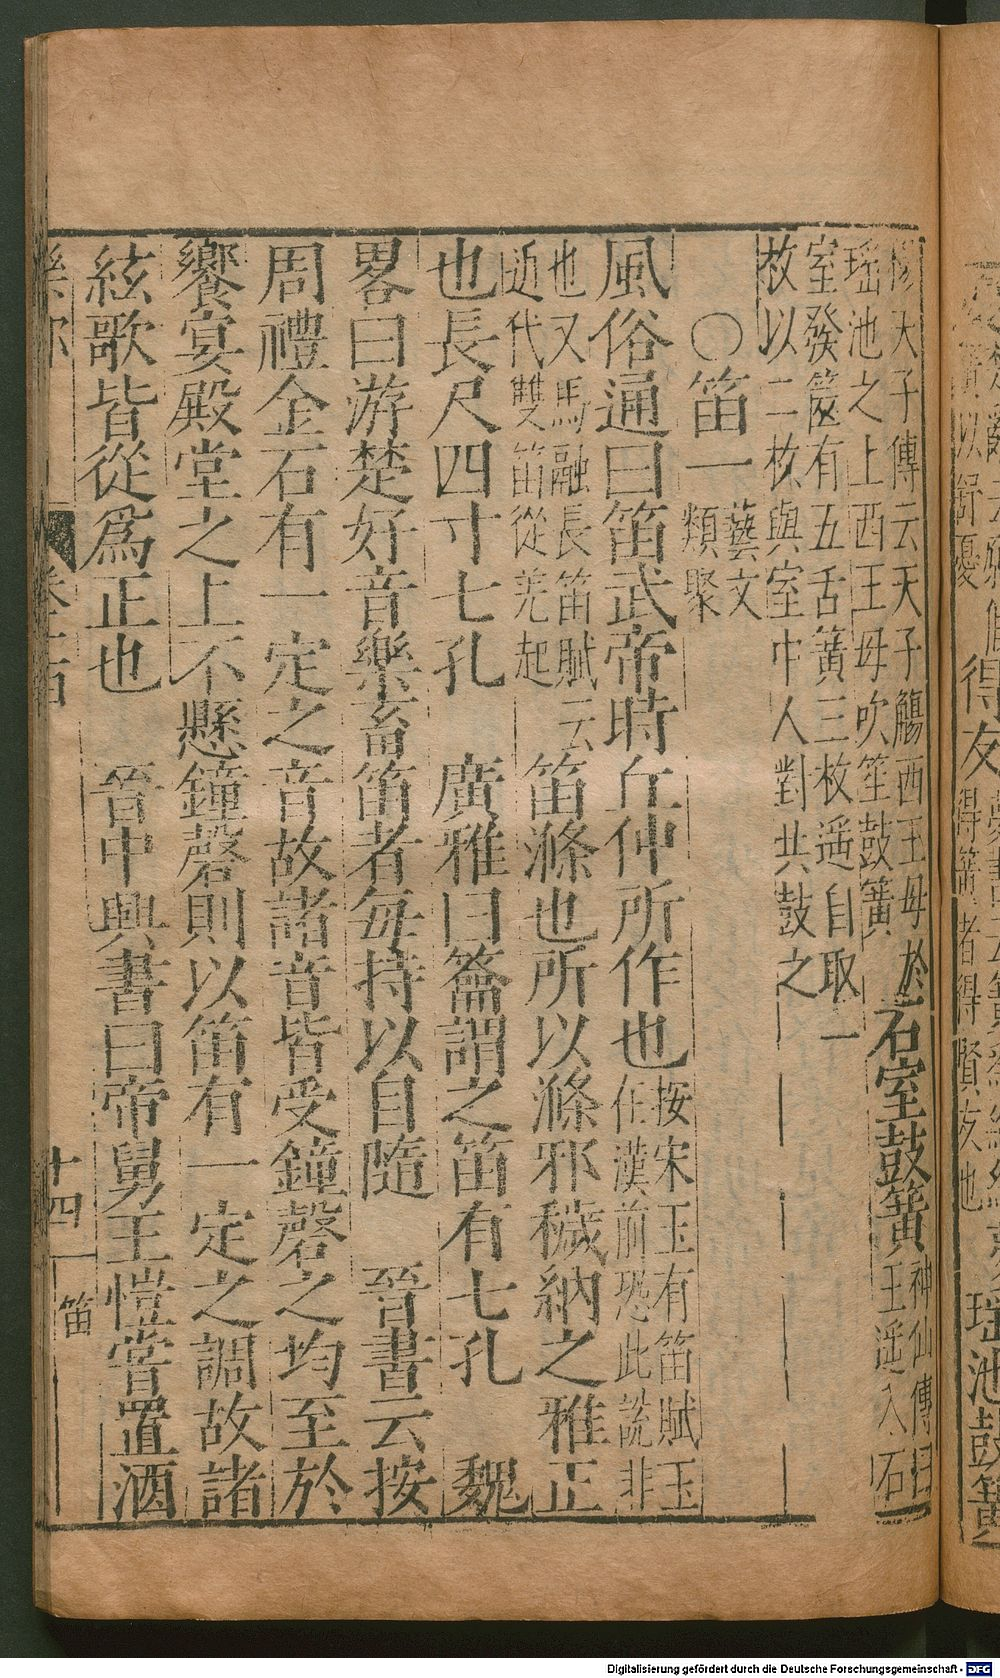 穆天子傳云天子觴西王母於
瑶池之上西王母吹笙鼓簧
石室鼓簧
神仙傳曰
王遥入石
室發篋有五舌簧三枚遥自取一
枚以二枚與室中人對共鼓之
〇笛一
藝文
類聚
風俗通曰笛武帝時丘仲所作也
按宋玉有笛賦玉
在漢前恐此說非
也又馬融長笛賦云
近代雙笛從羌起
笛滌也所以滌邪穢納之雅正
也長尺四寸七孔 廣雅曰籥謂之笛有七孔 魏
畧曰游楚好音樂畜笛者每持以自隨 晉書云按
周禮金石有一定之音故諸音皆受鐘磬之均至於
饗宴殿堂之上不懸鐘磬則以笛有一定之調故諸
絃歌皆從爲正也 晉中興書曰帝舅王愷嘗置酒
十四
笛
得友
得簧者得賢友也
瑶池鼓簧
Digitalisierung gefördert durch die Deutsche Forschungsgemeinschaft - DFG